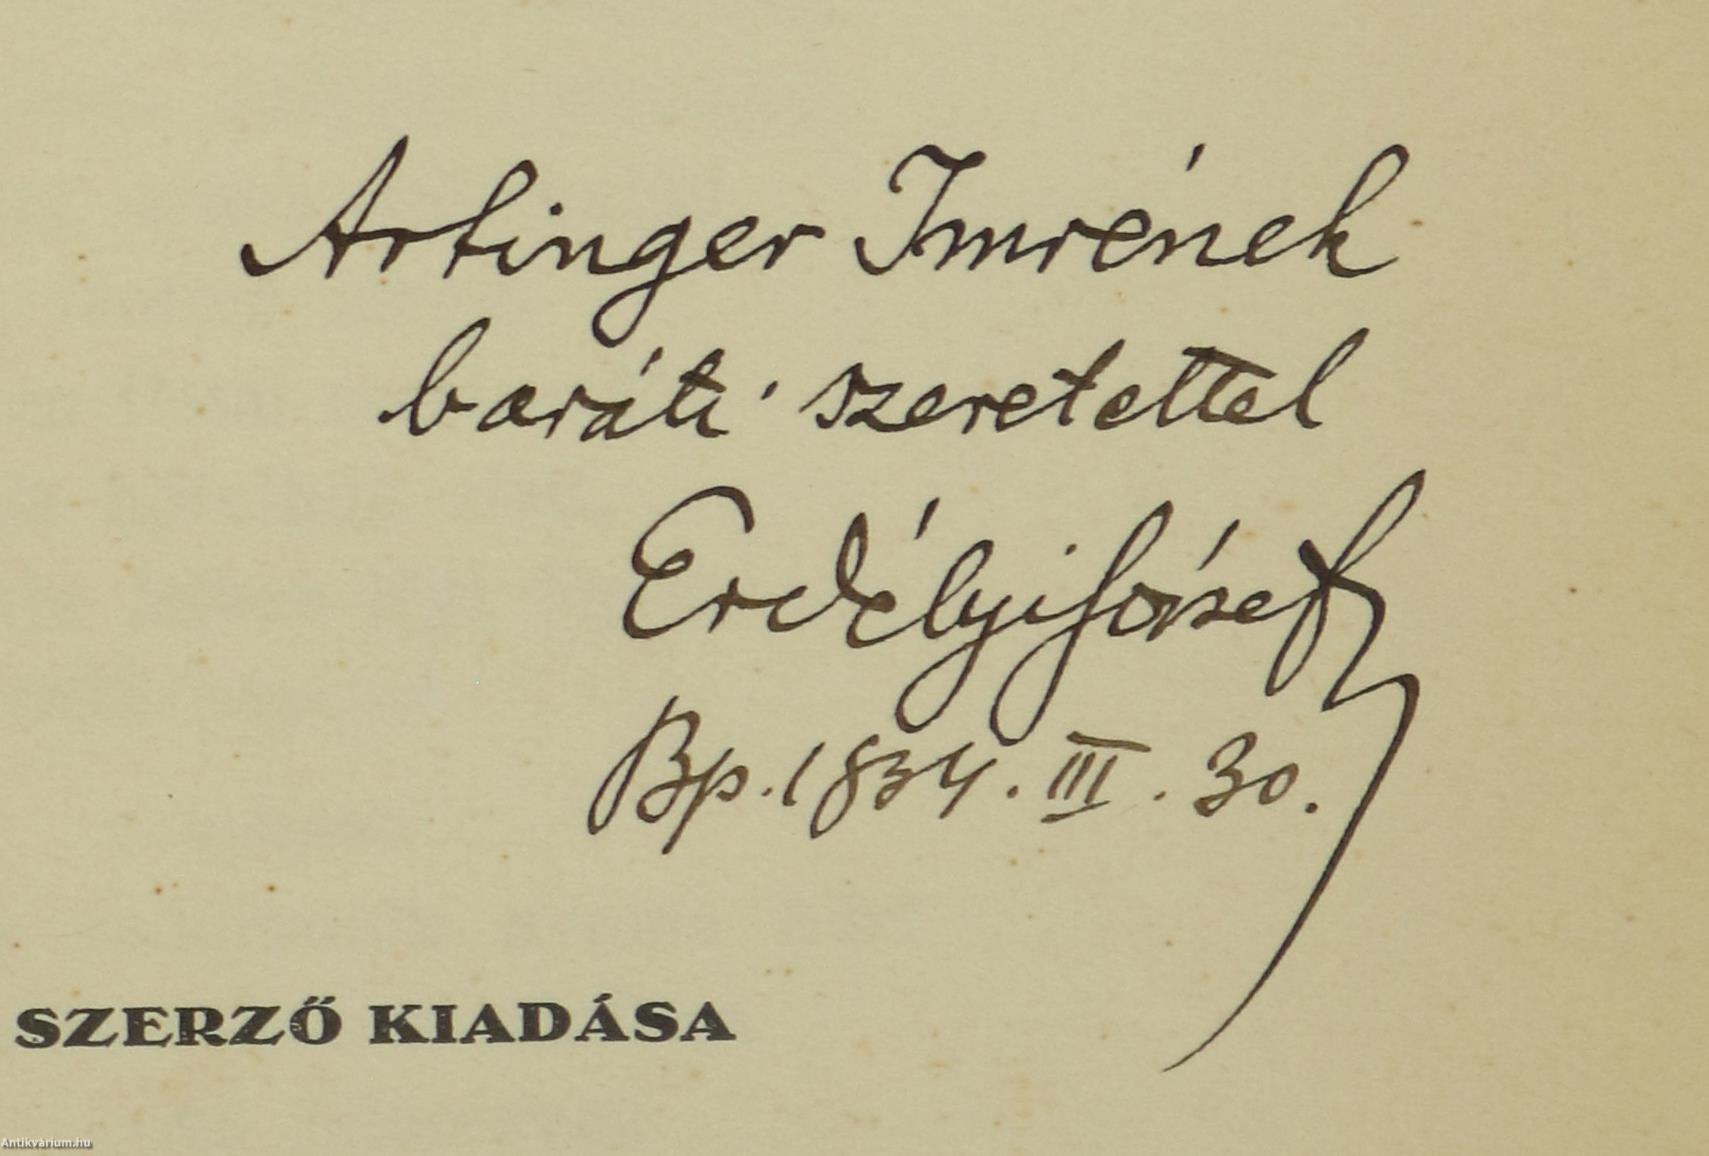 Artinger Imrének
baráti szeretettel
Erdélyi József
Bp. 1934. III. 30.
SZERZŐ KIADÁSA
Antikvárium.hu